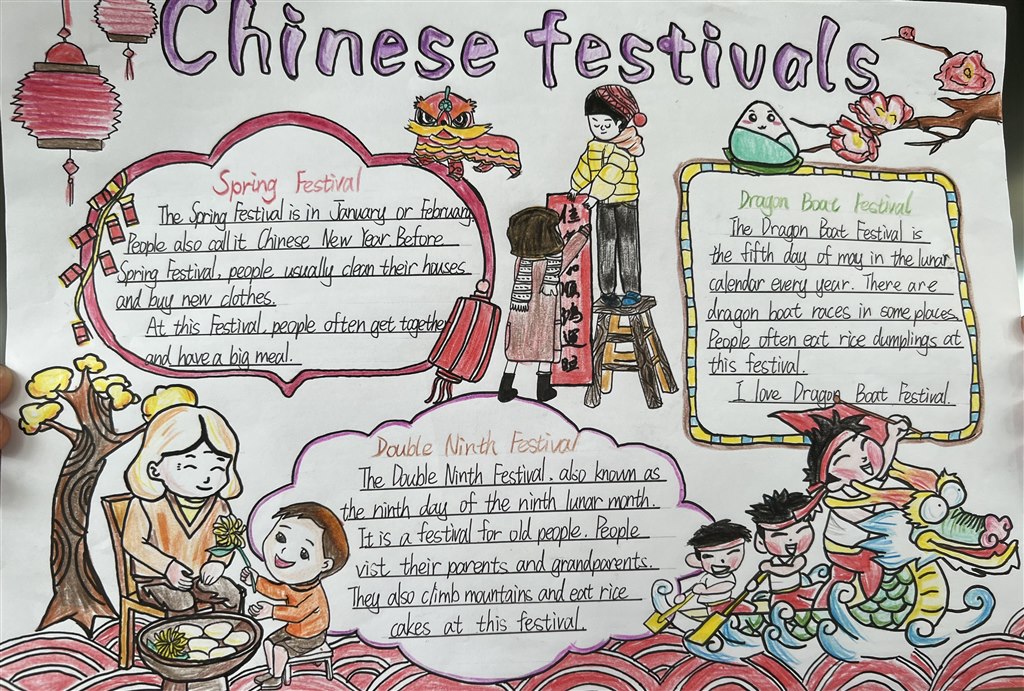 Chinese festivals
Spring Festival
The Spring Festival is in January or February.
People also call it Chinese New Year Before
Spring Festival, people usually clean their houses
and buy new clothes.
At this Festival, people often get together
and have a big meal.
Dragon Boat Festival
The Dragon Boat Festival is
the fifth day of may in the lunar
calendar every year. There are
dragon boat races in some places.
People often eat rice dumplings at
this festival.
I love Dragon Boat Festival.
Double Ninth Festival
The Double Ninth Festival. also known as
the ninth day of the ninth lunar month.
It is a festival for old people. People
vist their parents and grandparents.
They also climb mountains and eat rice
cakes at this festival.